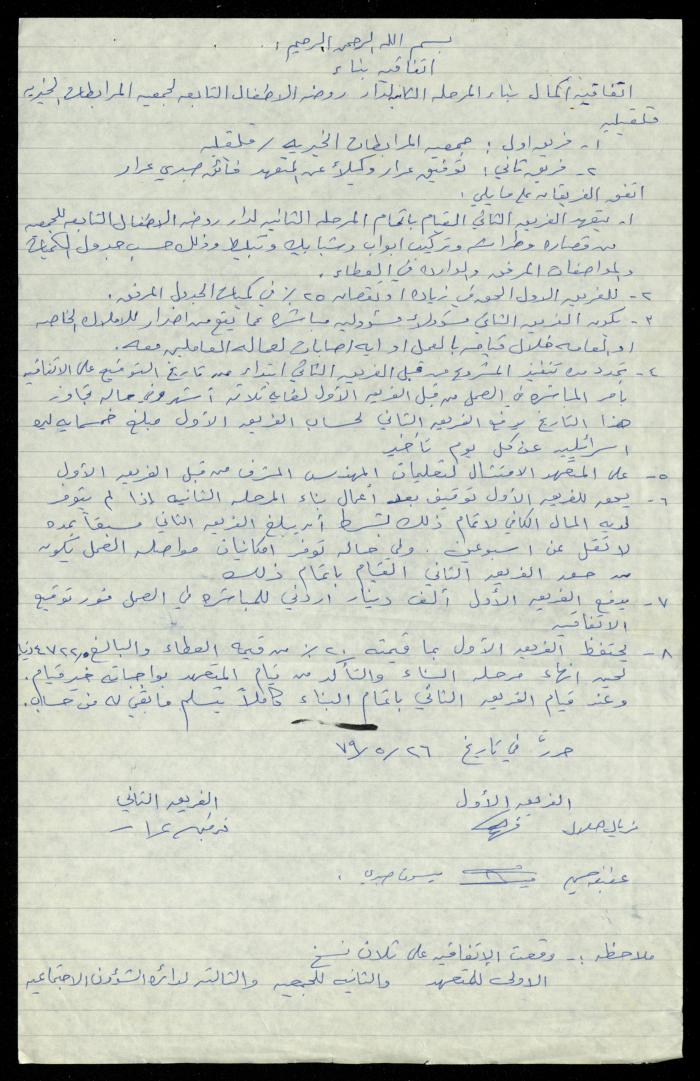 بسم الله الرحمن الرحيم :
اتفاقيه بناء
اتفاقية اكمال بناء المرحله الثانيه لدار روضه الاطفال التابعه لجمعيه المرابطات الخيريه
قلقيليه
١- فريق اول : جمعيه المرابطات الخيريه / قلقيليه
٢- فريق ثاني : توفيق عرار وكيلاً عن المتعهد فائق صبري عرار
اتفق الفريقان على مايلي :
١- يتعهد الفريق الثاني القيام باتمام المرحله الثانيه لدار روضه الاطفال التابعه للجمعيه
من قصاره وطراشه وتركيب ابواب وشبابيك وتبليط وذلك حسب جدول الكميات
والمواصفات المرفق والوارده في العطاء .
٢- للفريق الاول الحق في زيادة او نقصان ٢٥٪ في كميات الجدول المرفق .
٣- يكون الفريق الثاني مسؤولاً مسؤوليه مباشره عما يقع من اضرار للاملاك الخاصه
او العامه خلال قيامه بالعمل او ايه اصابات لعماله العاملين معه .
٤- تحدد مده تنفيذ المشروع من قبل الفريق الثاني ابتداء من تاريخ التوقيع على الاتفاقيه
بأمر المباشره في العمل من قبل الفريق الأول لغاية ثلاثه أشهر وفي حاله تجاوز
هذا التاريخ يدفع الفريق الثاني لحساب الفريق الأول مبلغ خمسمايه ليره
اسرائيليه عن كل يوم تأخير
٥- على المتعهد الامتثال لتعليمات المهندس المشرف من قبل الفريق الأول
٦- يحق للفريق الأول توقيف بعد أعمال بناء المرحله الثانيه إذا لم يتوفر
لديه المال الكافي لاتمام ذلك بشرط أن يبلغ الفريق الثاني مسبقاً بمده
لا تقل عن اسبوعين . وفي حاله توفر امكانيات مواصله العمل تكون
من حق الفريق الثاني القيام باتمام ذلك
٧- يدفع الفريق الأول ألف دينار أردني للمباشره في العمل فور توقيع
الاتفاقيه
٨- يحتفظ الفريق الأول بما قيمته ٢٠٪ من قيمه العطاء والبالغ ٤٧٢٢
لحين انهاء مرحله البناء والتأكد من قيام المتعهد بواجباته خير قيام .
وعند قيام الفريق الثاني باتمام البناء كاملاً يتسلم ما بقي له من حسابه .
حرر في تاريخ ٢٦/٥/٧٩
الفريق الأول الفريق الثاني
فريال هلال توفيق عرار
ميسون صبري .
ملاحظه :- وقعت الإتفاقيه على ثلاث نسخ
الاولى للمتعهد والثانيه للجمعيه والثالثه لدائره الشؤون الاجتماعيه